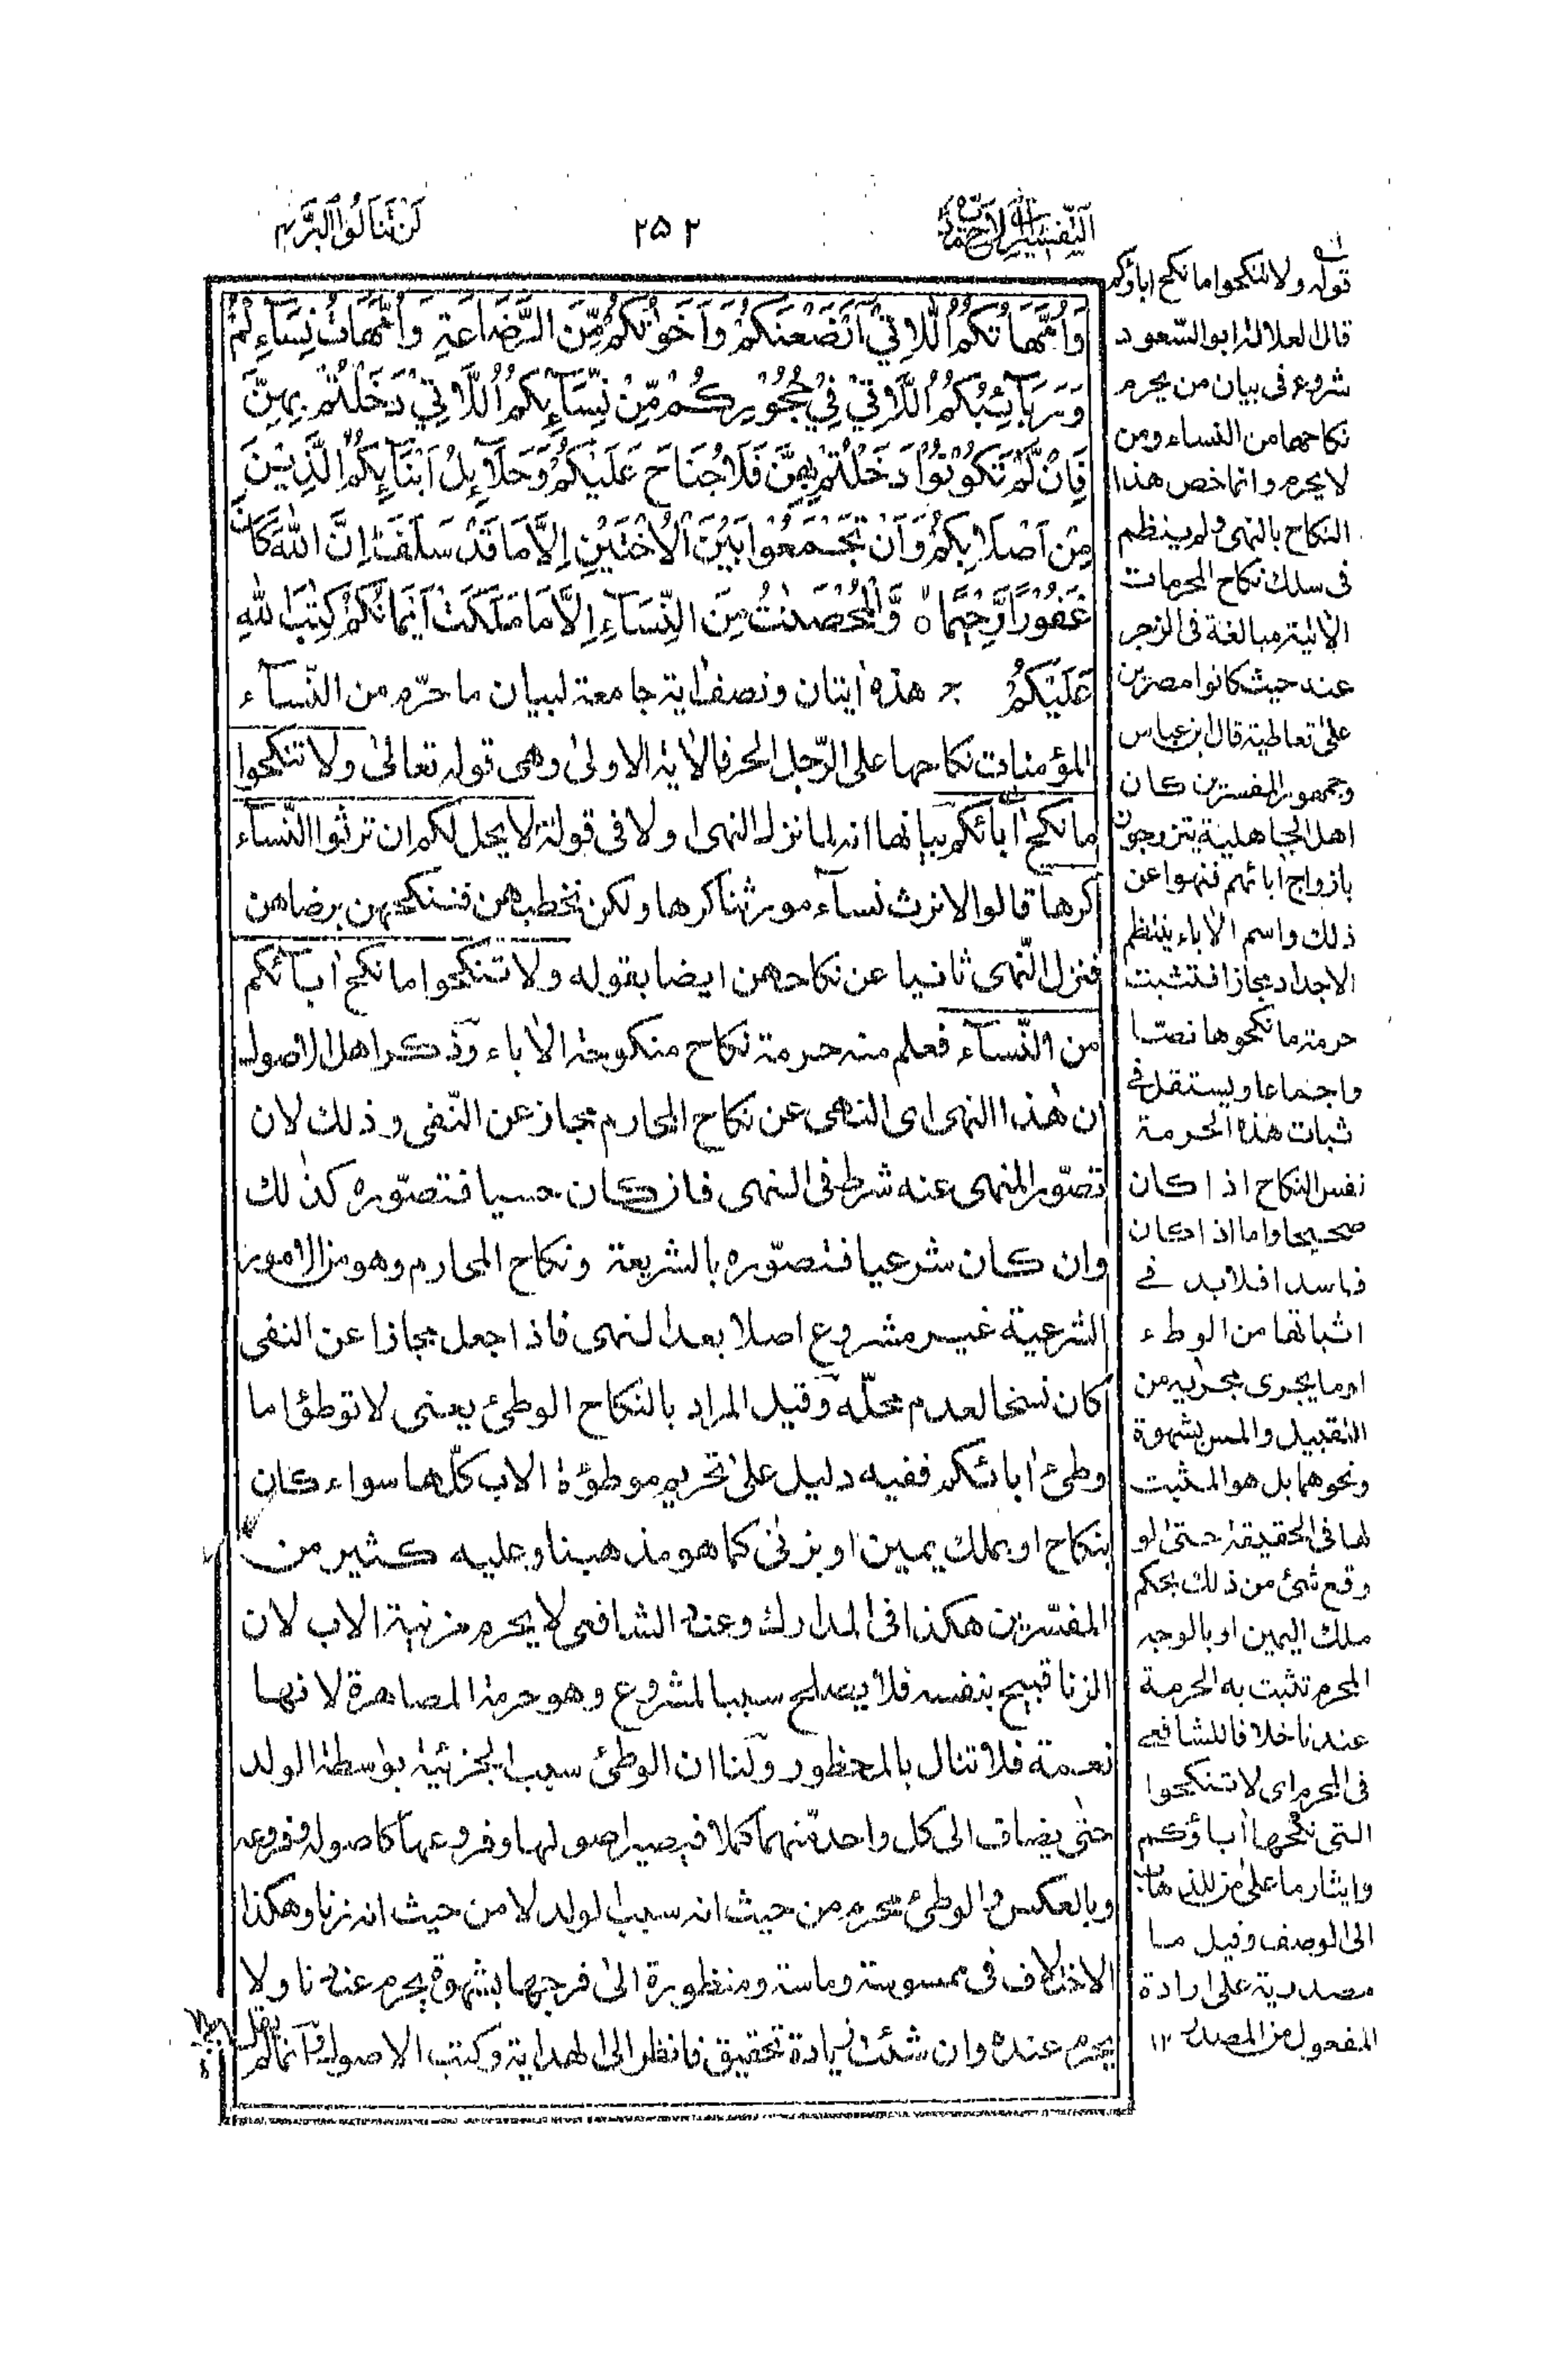 التفسيرات الاحمدية
٢٥٢
لن تنالوا البر ٤
وَاُمَّهَاتُكُمُ اللَّاتِيْ اَرْضَعْنَكُمْ وَاَخَوٰتُكُمْ مِّنَ الرَّضَاعَةِ وَاُمَّهَاتُ نِسَآءِكُمْ
وَرَبَآئِبُكُمُ اللَّاتِيْ فِيْ حُجُوْرِكُمْ مِّنْ نِّسَآئِكُمُ اللَّاتِيْ دَخَلْتُمْ بِهِنَّ
فَاِنْ لَّمْ تَكُوْنُوْا دَخَلْتُمْ بِهِنَّ فَلَا جُنَاحَ عَلَيْكُمْ وَحَلَآئِلُ اَبْنَآئِكُمُ الَّذِيْنَ
مِنْ اَصْلَابِكُمْ وَاَنْ تَجْمَعُوْا بَيْنَ الْاُخْتَيْنِ اِلَّا مَا قَدْ سَلَفَ اِنَّ اللّٰهَ كَانَ
غَفُوْرًا رَّحِيْمًا ٥ وَّالْمُحْصَنٰتُ مِنَ النِّسَآءِ اِلَّا مَا مَلَكَتْ اَيْمَانُكُمْ كِتٰبَ اللهِ
عَلَيْكُمْ ؞ هذه اٰيتان ونصف اٰية جامعة لبيان ما حرّم من النّسآء
المؤمنات نكاحها على الرّجل الحر فالاٰية الاولىٰ وهى قوله تعالىٰ ولا تنكحوا
ما نكح اٰبآئكم بيانها انه لما نزل النهى اولا فى قوله لا يحل لكم ان ترثوا النّسآء
كرها قالوا لا نرث نسآء مورثنا كرها ولكن نخطبهن فننكحهن برضاهن
فنزل النّهى ثانيا عن نكاحهن ايضا بقوله ولا تنكحوا ما نكح اٰبآئكم
من النّسآء فعلم منه حرمة نكاح منكوحة الاٰباء وذكر اهل الاصول
ان هٰذا النهى اى النهى عن نكاح المحارم مجاز عن النّفى وذلك لان
تصوّر المنهى عنه شرط فى النهى فان كان حسيا فتصوّره كذٰلك
وان كان شرعيا فتصوّره بالشريعة ونكاح المحارم وهو من الامور
الشرعية غير مشروع اصلا بعد النهى فاذا جعل مجازا عن النفى
كان نسخا لعدم محلّه وقيل المراد بالنكاح الوطئ يعنى لا توطؤا ما
وطئ اٰبائكم ففيه دليل علىٰ تحريم موطؤة الاب كلّها سواء كان
بنكاح او بملك يمين او بزنى كما هو مذهبنا وعليه كثير من
المفسّرين هكذا فى المدارك وعند الشافعى لا يحرم مزنية الاب لان
الزنا قبيح بنفسه فلا يصلح سببا لمشروع وهو حرمة المصاهرة لانها
نعمة فلا تنال بالمحظور ولنا ان الوطئ سبب الجزئية بواسطة الولد
حتىٰ يضاف الى كل واحد منهما كملا فيصير اصولها وفروعها كاصوله وفروعه
وبالعكس والوطئ محرم من حيث انه سبب الولد لا من حيث انه زنا وهكذا
الاختلاف فى ممسوسة وماسة ومنظورة الىٰ فرجها بشهوة يحرم عندنا ولا
يحرم عنده وان شئت زيادة تحقيق فانظر الى الهداية وكتب الاصول وانما لم
قوله ولا تنكحوا ما نكح اباؤكم
قال العلامة ابو السّعود
شروع فى بيان من يحرم
نكاحها من النساء ومن
لا يحرم وانما خص هذا
النكاح بالنهى ولم ينظم
فى سلك نكاح المحرمات
الاٰتية مبالغة فى الزجر
عنه حيث كانوا مصرين
علىٰ تعاطيه قال ابن عباس
وجمهور المفسرين كان
اهل الجاهلية يتزوجون
بازواج اٰبائهم فنهوا عن
ذلك واسم الاٰباء ينتظم
الاجداد مجازا فتثبت
حرمة ما نكحوها نصّا
واجماعا ويستقل فى
ثبات هذه الحرمة
نفس النكاح اذا كان
صحيحا واما اذا كان
فاسدا فلا بد فى
اثباتها من الوطء
او ما يجرى مجراه من
التقبيل والمس بشهوة
ونحوهما بل هو المثبت
لها فى الحقيقة حتىٰ لو
وقع شئ من ذلك بحكم
ملك اليمين او بالوجه
المحرم تثبت به الحرمة
عندنا خلافا للشافعى
فى المحرم اى لا تنكحوا
التى نكحها اٰباؤكم
وايثار ما علىٰ من للذهاب
الى الوصف وقيل ما
مصدرية علىٰ ارادة
المفعول من المصدر ١٢